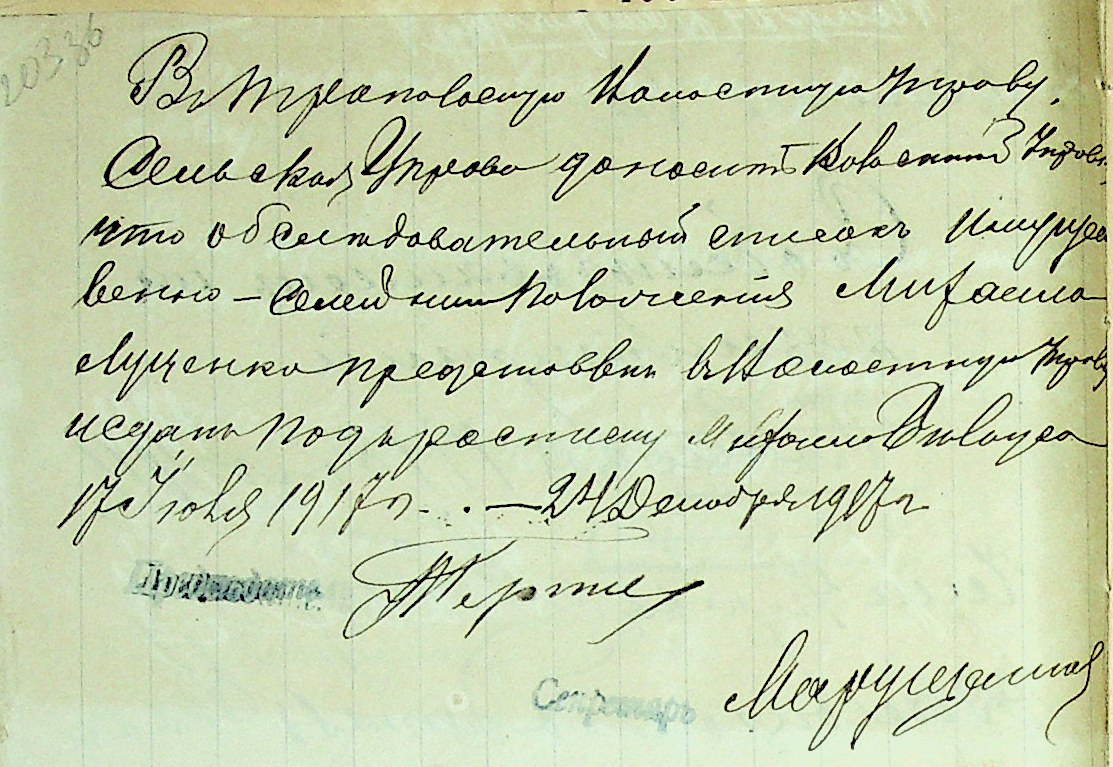 20336
В Траповаскую Волостную Управу,
Сельская Управа доноситъ Волостной Управе
что обследовательный список имущест
венно – семейнии положения Михаила
Луценко представлен в Волостную Управу
и сдан под расписку Михаила
17 Июня 1917 г. . – 24 Декабря 1917 г
Председатель
Секретарь